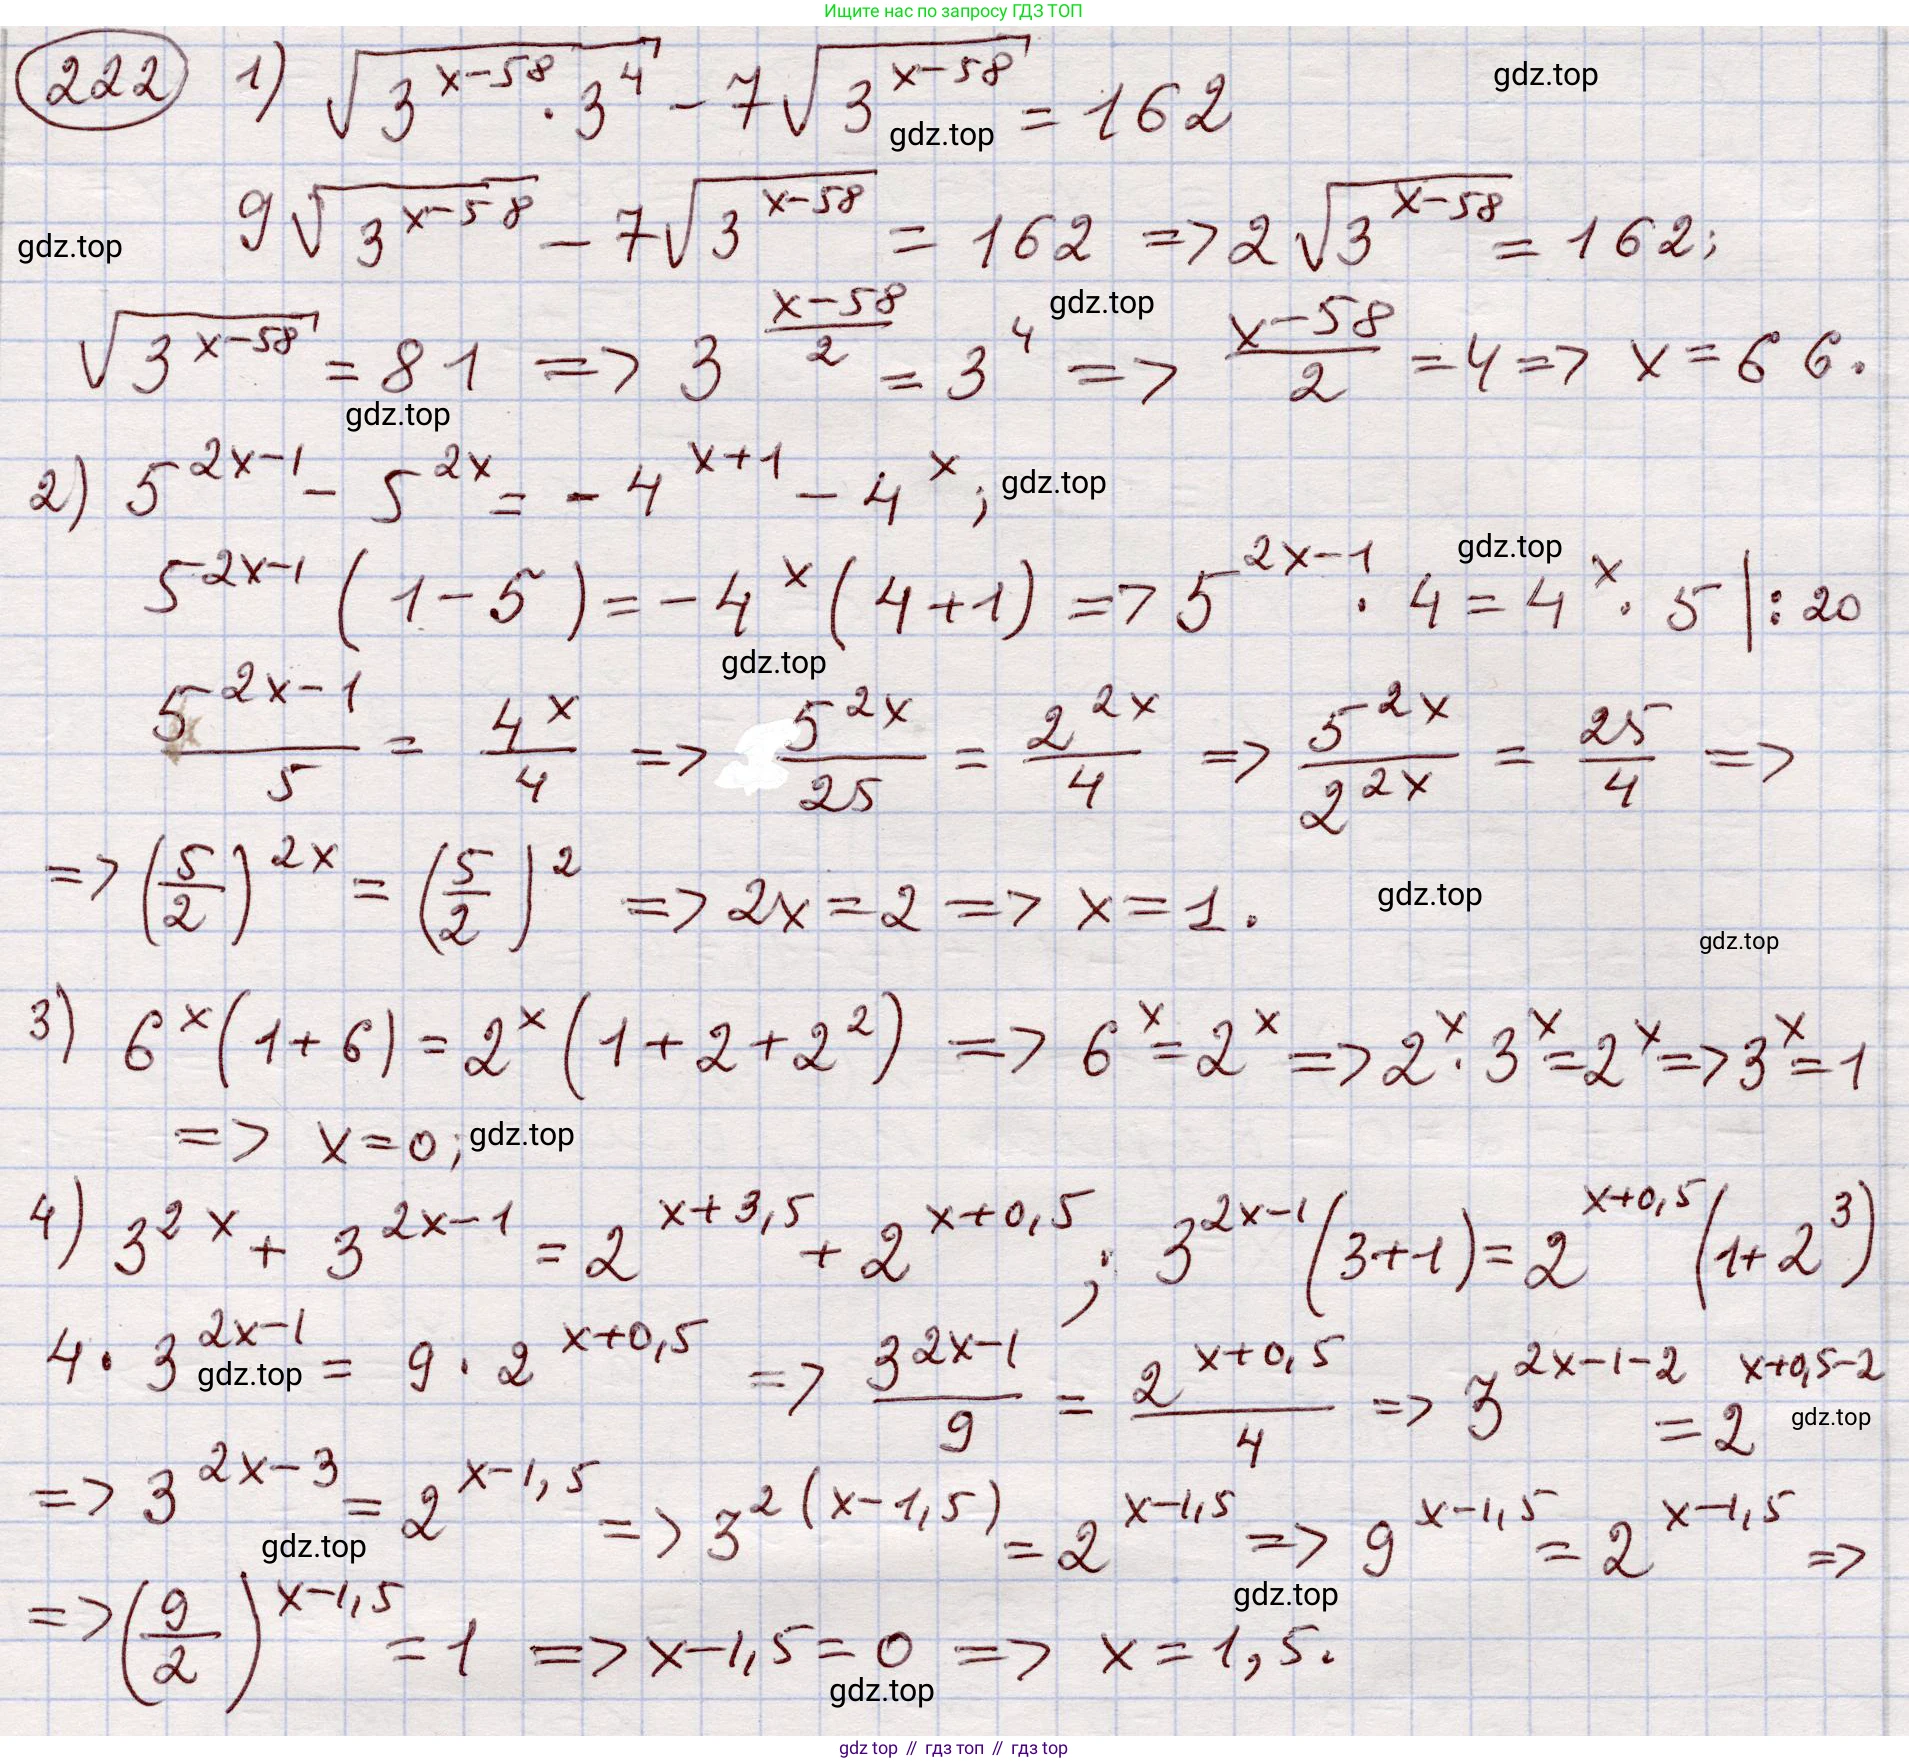 Ищите нас по запросу ГДЗ ТОП
222 1) √(3^(x-58) · 3^4) - 7√(3^(x-58)) = 162
gdz.top
gdz.top
9√(3^(x-58)) - 7√(3^(x-58)) = 162 => 2√(3^(x-58)) = 162;
gdz.top
gdz.top
√(3^(x-58)) = 81 => 3^((x-58)/2) = 3^4 => (x-58)/2 = 4 => x = 66.
gdz.top
2) 5^(2x-1) - 5^(2x) = -4^(x+1) - 4^x;
gdz.top
gdz.top
5^(2x-1) (1-5) = -4^x (4+1) => 5^(2x-1) · 4 = 4^x · 5 |: 20
gdz.top
5^(2x-1)/5 = 4^x/4 => 5^(2x)/25 = 2^(2x)/4 => 5^(2x)/2^(2x) = 25/4 =>
=> (5/2)^(2x) = (5/2)^2 => 2x = 2 => x = 1.
gdz.top
gdz.top
3) 6^x (1+6) = 2^x (1+2+2^2) => 6^x = 2^x => 2^x · 3^x = 2^x => 3^x = 1
=> x = 0;
gdz.top
4) 3^(2x) + 3^(2x-1) = 2^(x+3,5) + 2^(x+0,5); 3^(2x-1) (3+1) = 2^(x+0,5) (1+2^3)
4 · 3^(2x-1) = 9 · 2^(x+0,5) => 3^(2x-1)/9 = 2^(x+0,5)/4 => 3^(2x-1-2) = 2^(x+0,5-2)
gdz.top
gdz.top
=> 3^(2x-3) = 2^(x-1,5) => 3^(2(x-1,5)) = 2^(x-1,5) => 9^(x-1,5) = 2^(x-1,5) =>
gdz.top
gdz.top
=> (9/2)^(x-1,5) = 1 => x-1,5 = 0 => x = 1,5.
gdz.top
gdz top // гдз топ // гдз top